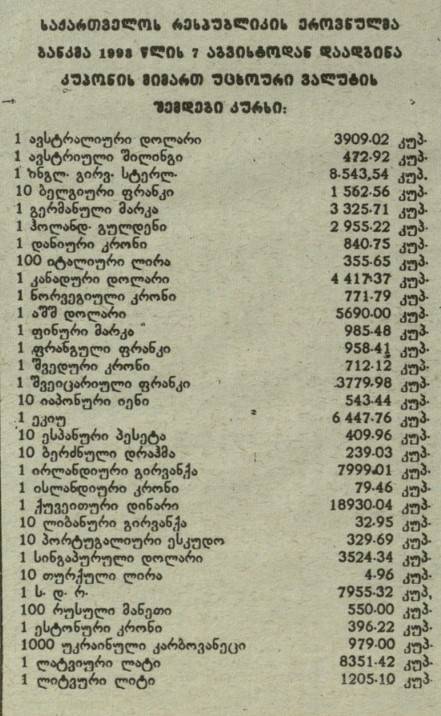 საქართველოს რესპუბლიკის ეროვნულმა
ბანკმა 1993 წლის 7 აგვისტოდან დაადგინა
კუპონის მიმართ უცხოური ვალუტის
შემდეგი კურსი:
1 ავსტრალიური დოლარი 3909.02 კუპ.
1 ავსტრიული შილინგი 472.92 კუპ.
1 ინგლ. გირვ. სტერლ. 8.543,54 კუპ.
10 ბელგიური ფრანკი 1 562.56 კუპ.
1 გერმანული მარკა 3 325.71 კუპ.
1 ჰოლანდ. გულდენი 2 955.22 კუპ.
1 დანიური კრონი 840.75 კუპ.
100 იტალიური ლირა 355.65 კუპ.
1 კანადური დოლარი 4 417.37 კუპ.
1 ნორვეგიული კრონი 771.79 კუპ.
1 აშშ დოლარი 5690.00 კუპ.
1 ფინური მარკა 985.48 კუპ.
1 ფრანგული ფრანკი 958.41 კუპ.
1 შვედური კრონი 712.12 კუპ.
1 შვეიცარიული ფრანკი 3779.98 კუპ.
10 იაპონური იენი 543.44 კუპ.
1 ეკიუ 6 447.76 კუპ.
10 ესპანური პესეტა 409.96 კუპ.
10 ბერძნული დრაჰმა 239.03 კუპ.
1 ირლანდიური გირვანქა 7999.01 კუპ.
1 ისლანდიური კრონი 79.46 კუპ.
1 ქუვეითური დინარი 18930.04 კუპ.
10 ლიბანური გირვანქა 32.95 კუპ.
10 პორტუგალიური ესკუდო 329.69 კუპ.
1 სინგაპურული დოლარი 3524.34 კუპ.
10 თურქული ლირა 4.96 კუპ.
1 ს. დ. რ. 7955.32 კუპ,
100 რუსული მანეთი 550.00 კუპ.
1 ესტონური კრონი 396.22 კუპ.
1000 უკრაინული კარბოვანეცი 979.00 კუპ.
1 ლატვიური ლატი 8351.42 კუპ.
1 ლიტვური ლიტი 1205.10 კუპ.